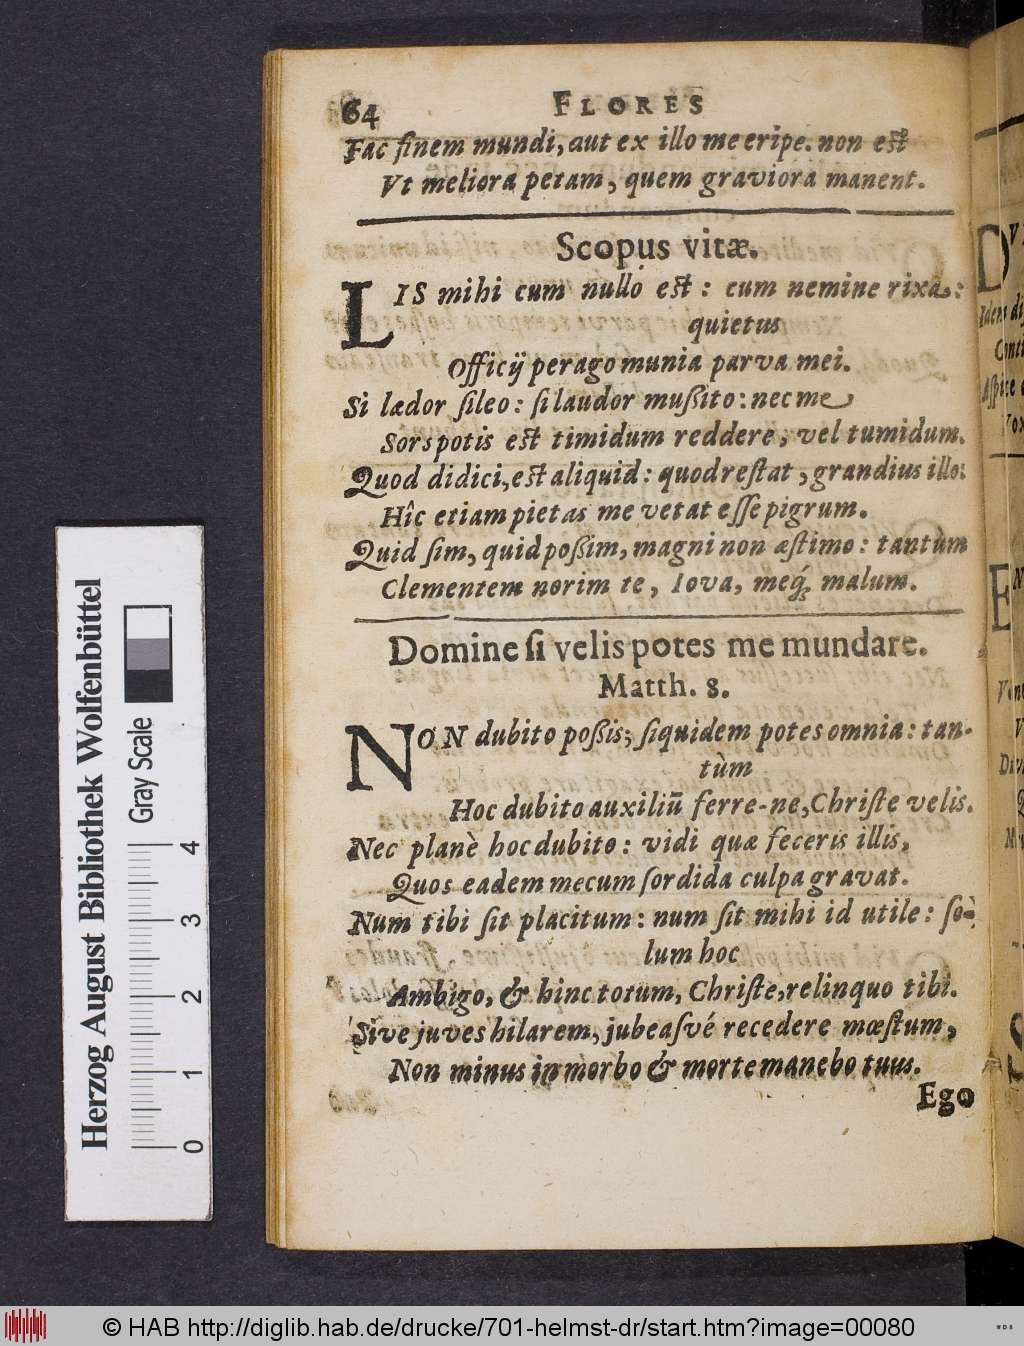 64 FLORES
Fac finem mundi, aut ex illo me eripe. non est
Vt meliora petam, quem graviora manent.
Scopus vitæ.
LIS mihi cum nullo est: cum nemine rixa:
quietus
Officij perago munia parva mei.
Si lædor ſileo: ſi laudor mußito: nec me
Sors potis est timidum reddere, vel tumidum.
Quod didici, est aliquid: quod reſtat, grandius illo:
Hîc etiam pietas me vetat eſſe pigrum.
Quid ſim, quid poßim, magni non æſtimo: tantùm
Clementem norim te, Iova, meq́; malum.
Domine ſi velis potes me mundare.
Matth. 8.
NON dubito poßis; ſiquidem potes omnia: tan-
tùm
Hoc dubito auxiliũ ferre-ne, Chriſte velis.
Nec planè hoc dubito: vidi quæ feceris illis,
Quos eadem mecum ſordida culpa gravat.
Num tibi ſit placitum: num ſit mihi id utile: ſo-
lum hoc
Ambigo, & hinc totum, Chriſte, relinquo tibi.
Sive juves hilarem, jubeaſvé recedere mœſtum,
Non minus in morbo & morte manebo tuus.
Ego
Herzog August Bibliothek Wolfenbüttel
Gray Scale
0 1 2 3 4
© HAB http://diglib.hab.de/drucke/701-helmst-dr/start.htm?image=00080